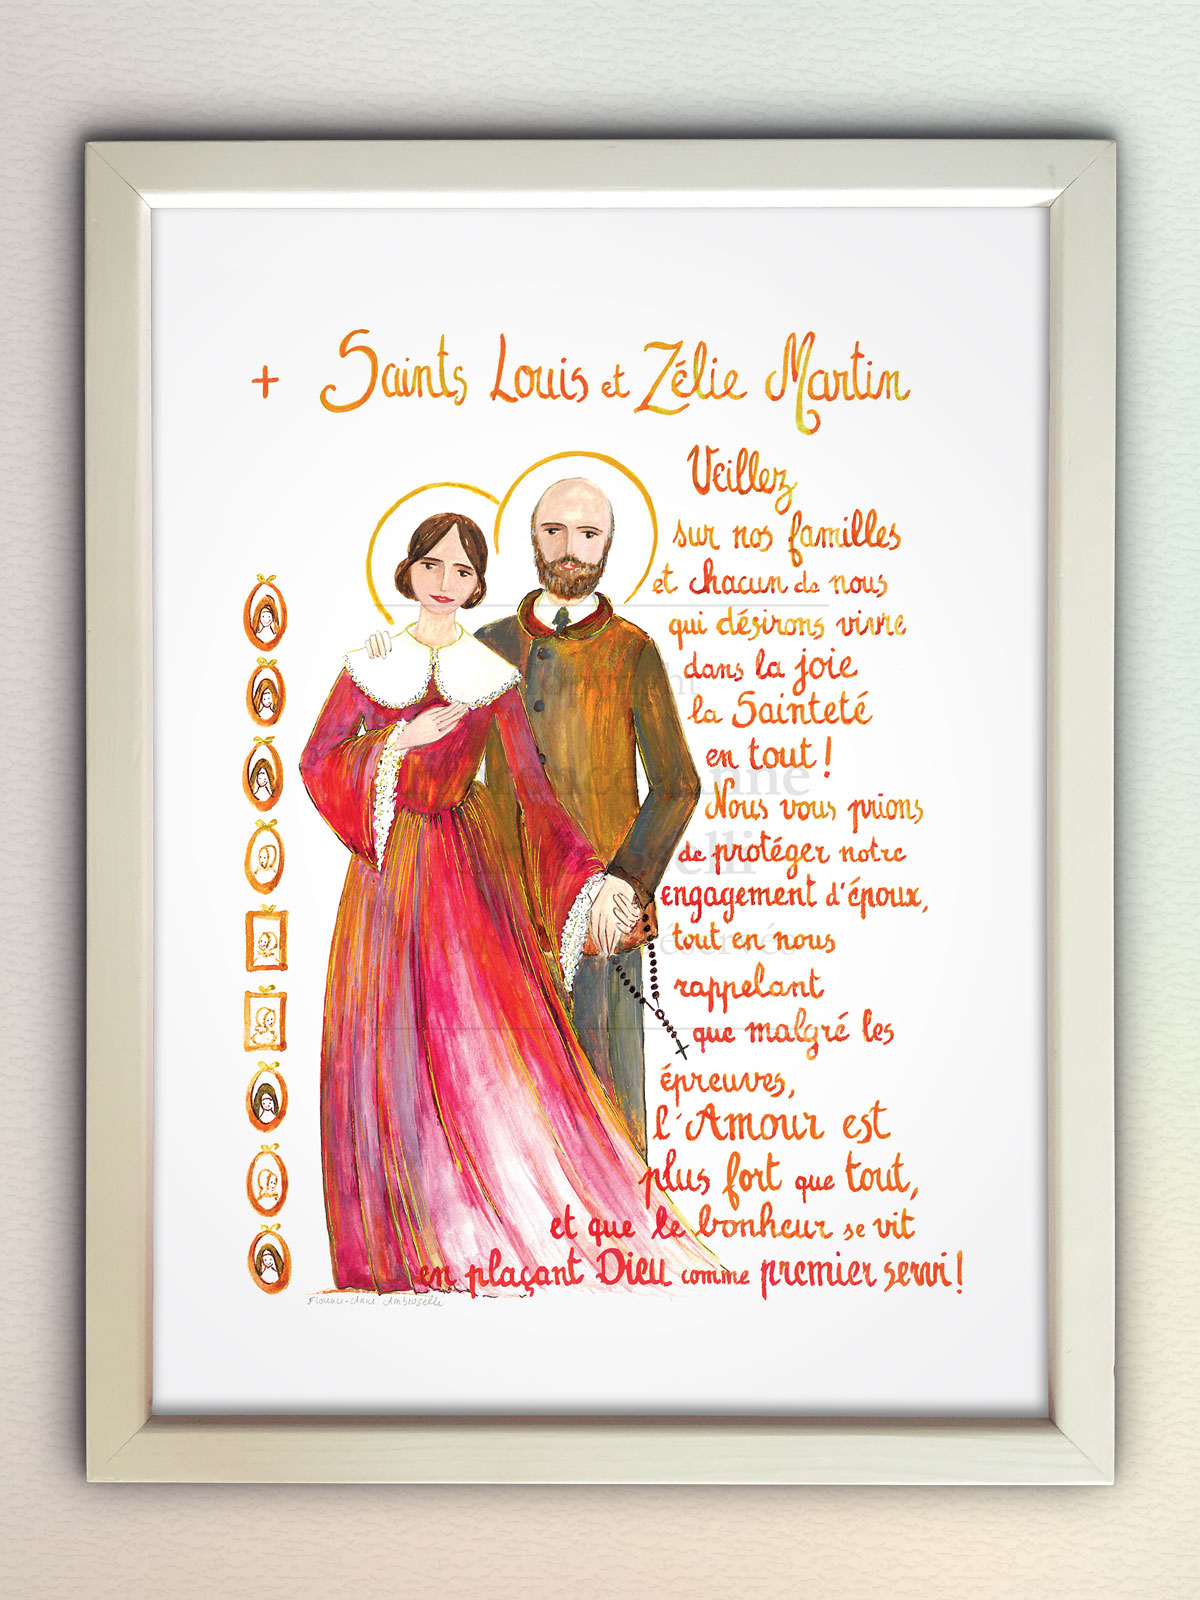 + Saints Louis et Zélie Martin
Veillez
sur nos familles
et chacun de nous
qui désirons vivre
dans la joie
la Sainteté
en tout !
Nous vous prions
de protéger notre
engagement d'époux,
tout en nous
rappelant
que malgré les
épreuves,
l'Amour est
plus fort que tout,
et que le bonheur se vit
en plaçant Dieu comme premier servi !
Florence-Anne Ambroselli